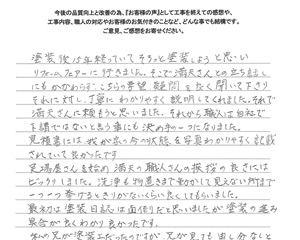 今後の品質向上と改善の為、『お客様の声』として工事を終えての感想や、
工事内容、職人の対応やお客様のお気付きのことなど、どんな事でも結構です。
ご意見、ご感想をお寄せください。
塗装後 年 経っていて そろそろ塗装しようと思い
リフォームフェアーに行きました。そこで満天さんとの立ち話し
にもかかわらず、こちらの希望 疑問を 良く聞いて下さり
それに対し、丁寧に わかりやすく 説明してくれました。それで
満天さんに頼もうと思いました。それから職人は自社で
下請ではないと言う事にも 決め の一つになりました。
見積書には 我が家の今の状態を写真わかりやすく記載
されていて良かったです
足場屋さんを始め 満天の職人さんの挨拶の良さには
びっくりしました。洗浄も物置きまで動かして見えない所まで
一つ一つ挙げるときりがないくらい良くしてもらいました。
最初は 塗装日誌は面倒だと思いましたが 塗装の進み
具合が良くわかり良かったです。
私の兄が塗装 だったのですが、兄が見ても 申し分なしと